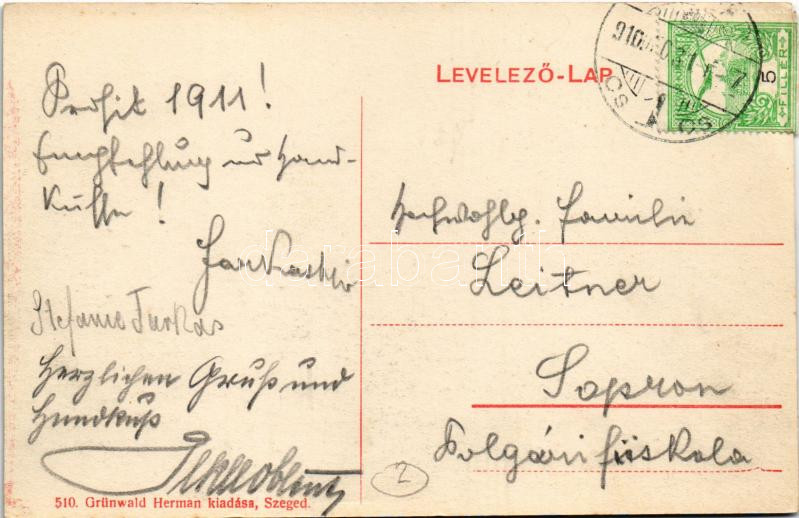 Prosit 1911!
Empfehlung und Hand-
küsse!
Stefanie Farkas
Herzlichen Gruß und
Handkuß
510. Grünwald Herman kiadása, Szeged.
LEVELEZŐ-LAP
5
FILLER
Hochwohlg. Familie
Leitner
Sopron
Polgári fiúskola
2